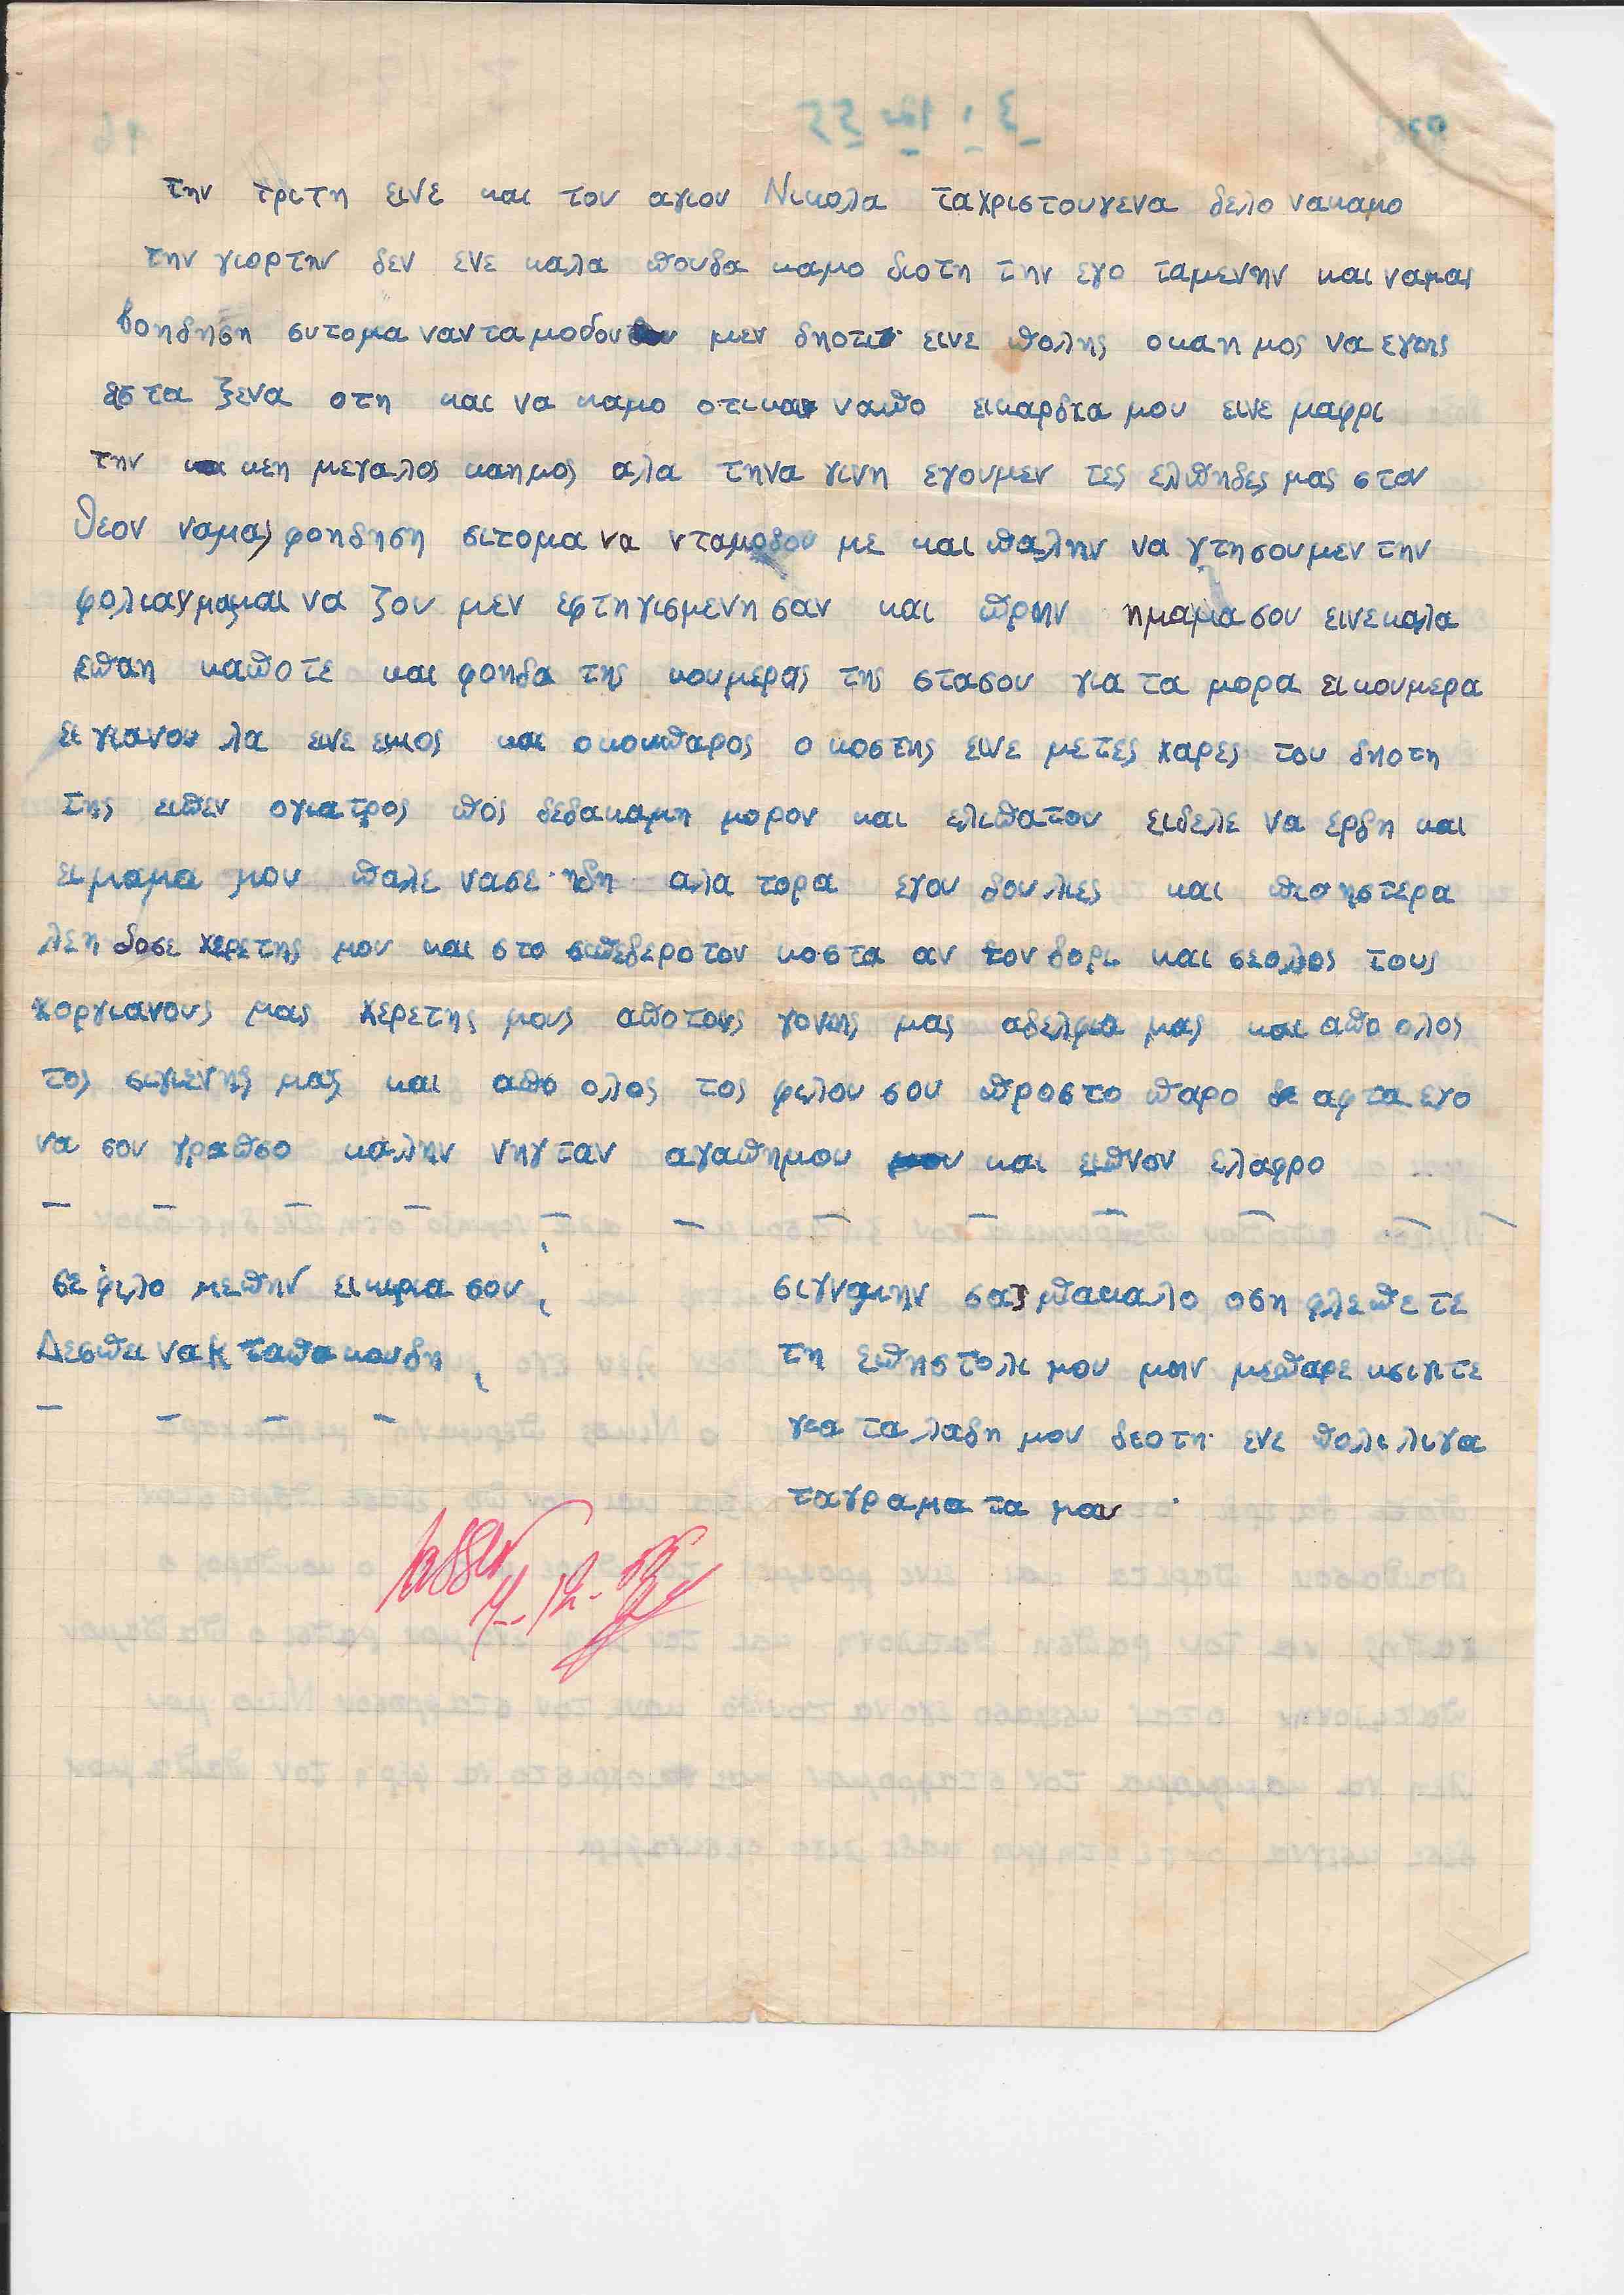 την τριτη εινε και του αγιου Νικολα ταχριστουγενα δελο νακαμο
την γιορτην δεν ενε καλα πουδα καμο διοτη την εγο ταμενην και ναμας
βοηδηση συτομα ναντα μοδου μεν δηοτι εινε πολης οκαη μος να εγης
στα ξενα οτη και να καμο οτικαι ναπο εικαρδια μου εινε μαφρι
την κεη μεγαλος καημος αλα τηνα γινη εγουμεν τες ελπηδες μας στον
θεον ναμας φοηδηση σιτομα να νταμοδου με και παλην να γτησουμεν την
φολιαν μας και να ζου μεν εφτηγισμενη σαν και πρην ημαμα σου εινεκαλα
επαη καποτε και φοηδα της κουμερας της στασου για τα μορα εικουμερα
ει γιανου λα εινε εκιος και οκουπαρος ο κοστης εινε μετες χαρες του δηοτη
της ειπεν ογιατρος πος δεδακαμη μορον και ελιπατον ειδελε να ερδη και
ει μαμα μου παλε νασε ηδη αλα τορα εγου δουλιες και πισηστερα
λεη δοσε χερετης μου και στο σιπεδερο τον κοστα αν τον δορι και σεολος τους
χοργιανους μας χερετης μους αποτους γονης μας αδελφια μας και απο ολος
τος σιγενης μας και απο ολος τος φιλου σου προστο παρο δε αφτα εγο
να σου γραπσο καλην νηγταν αγαπημου και ειπνον ελαφρο
σε φιλο μεπην εικιρια σου
Δεσπι να Κ ταπακουδη
σιγνομην σας παακαλο οση φλεπετε
τη επηστολι μου μην μεπαρε κσιγιτε
για τα λαδη μου δεοτη ενε πολι λιγα
ταγραμα τα μου
4-12-55